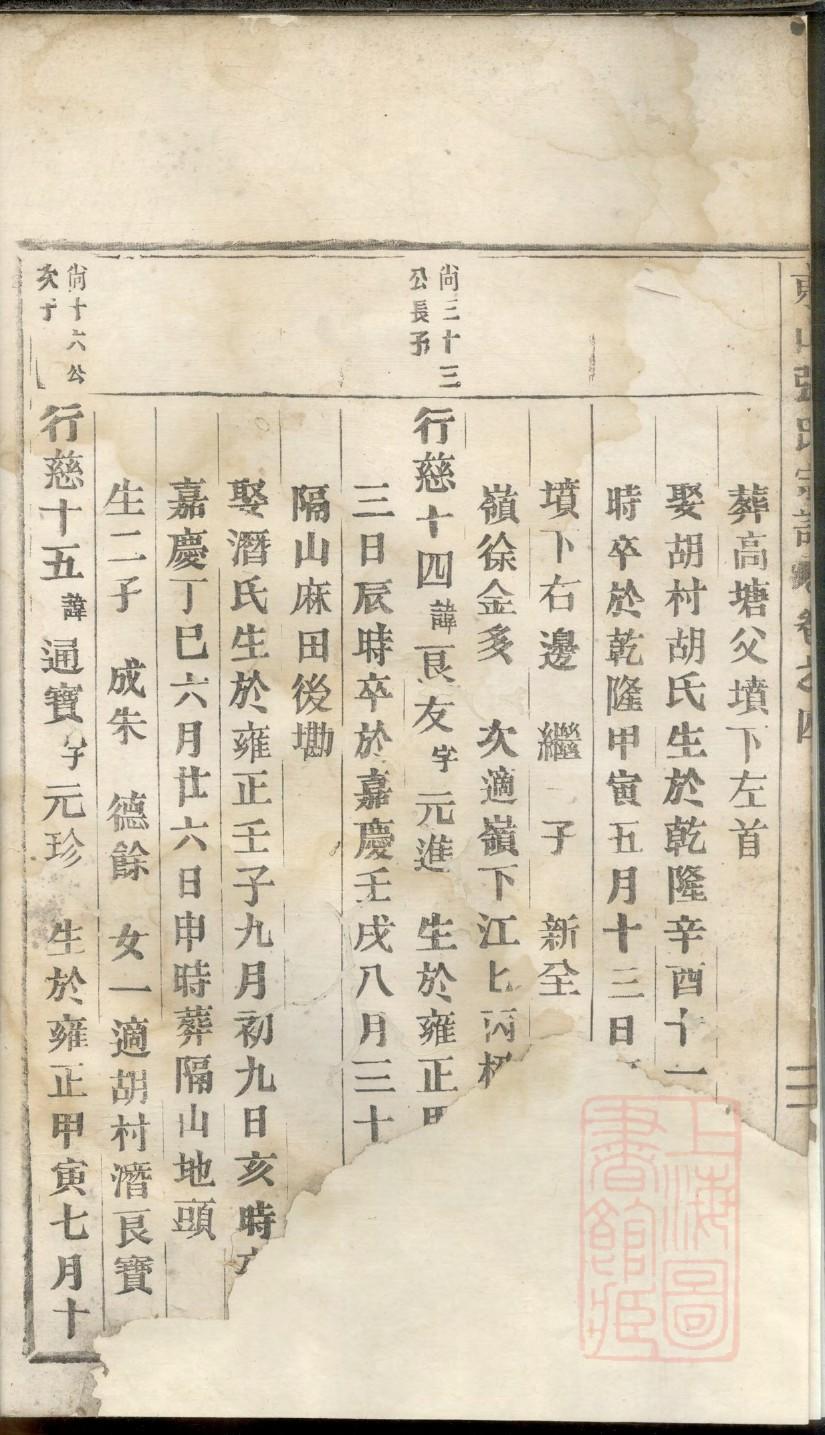 東山張氏宗譜 卷之四
葬高塘父墳下左首
娶胡村胡氏生於乾隆辛酉十一
時卒於乾隆甲寅五月十三日
墳下右邊 繼 子 新全
嶺徐金多 次適嶺下江
尚三十三公長子
行慈十四諱良友字元進 生於雍正
三日辰時卒於嘉慶壬戌八月三十
隔山麻田後墈
娶潛氏生於雍正壬子九月初九日亥時
嘉慶丁巳六月廿六日申時葬隔山地頭
生二子 成朱 德餘 女一適胡村潛良寶
尚十六公次子
行慈十五諱通寶字元珍 生於雍正甲寅七月十
上海圖書館藏